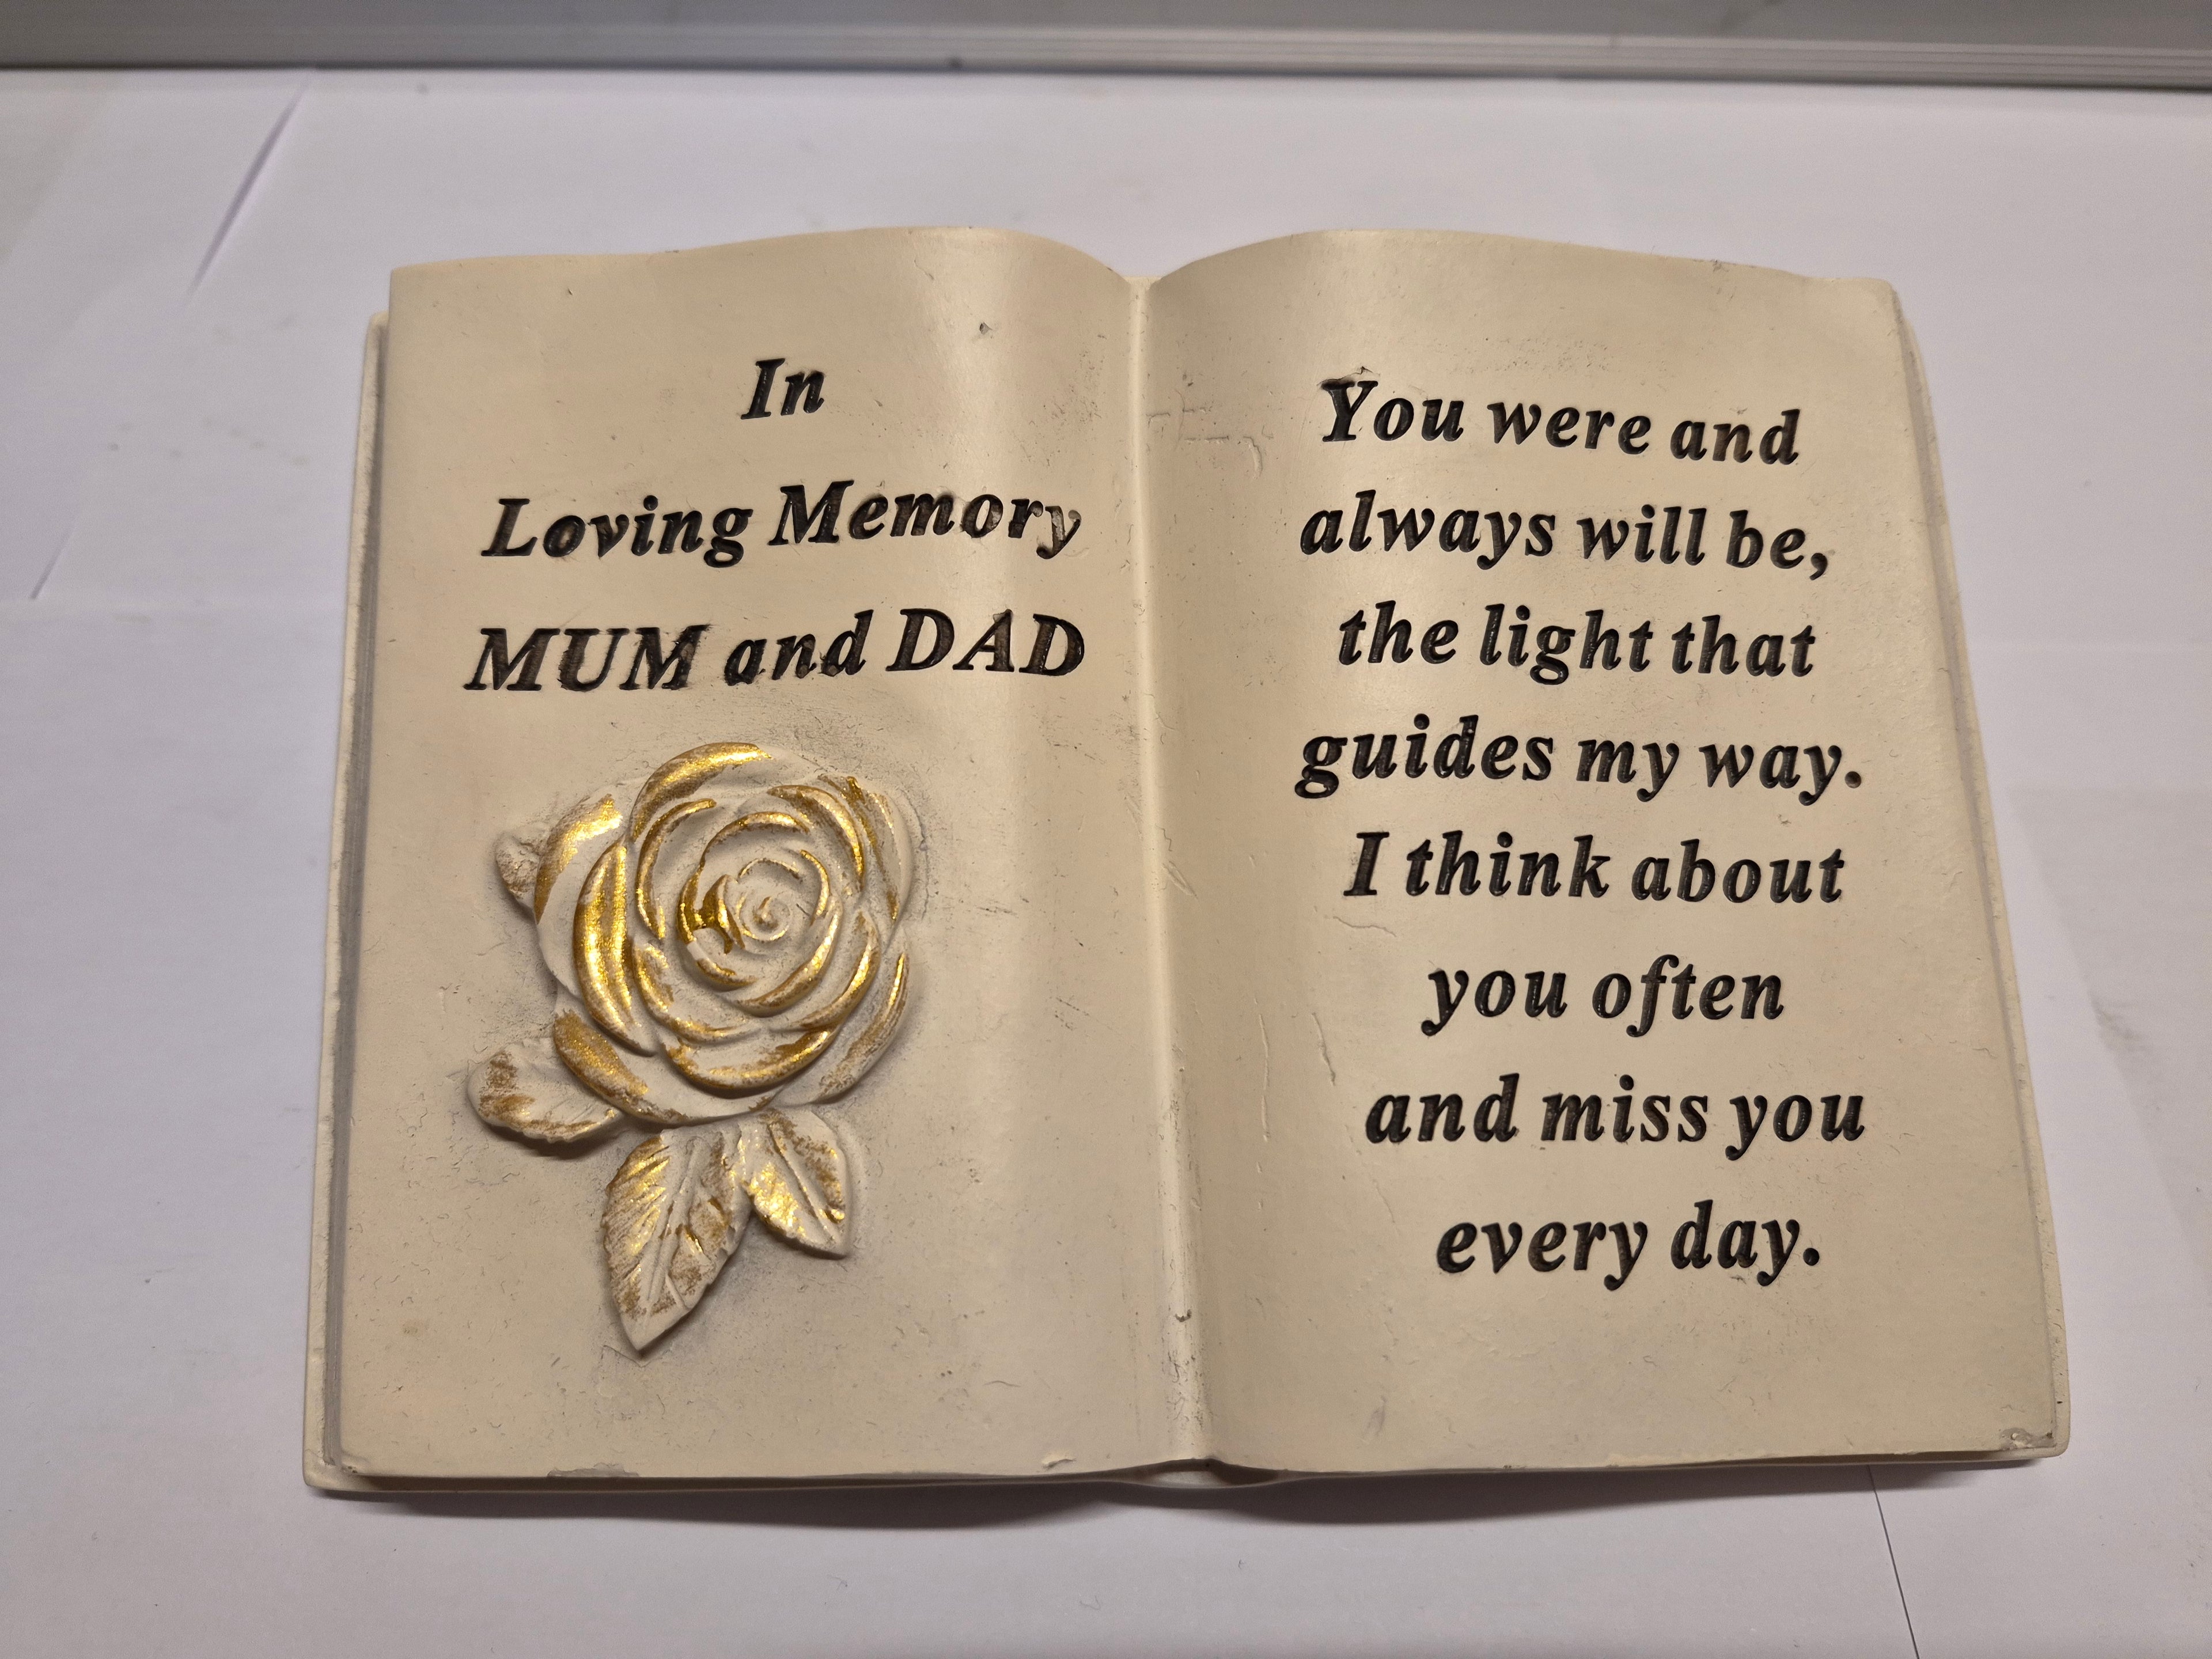 In
Loving Memory
MUM and DAD
You were and
always will be,
the light that
guides my way.
I think about
you often
and miss you
every day.